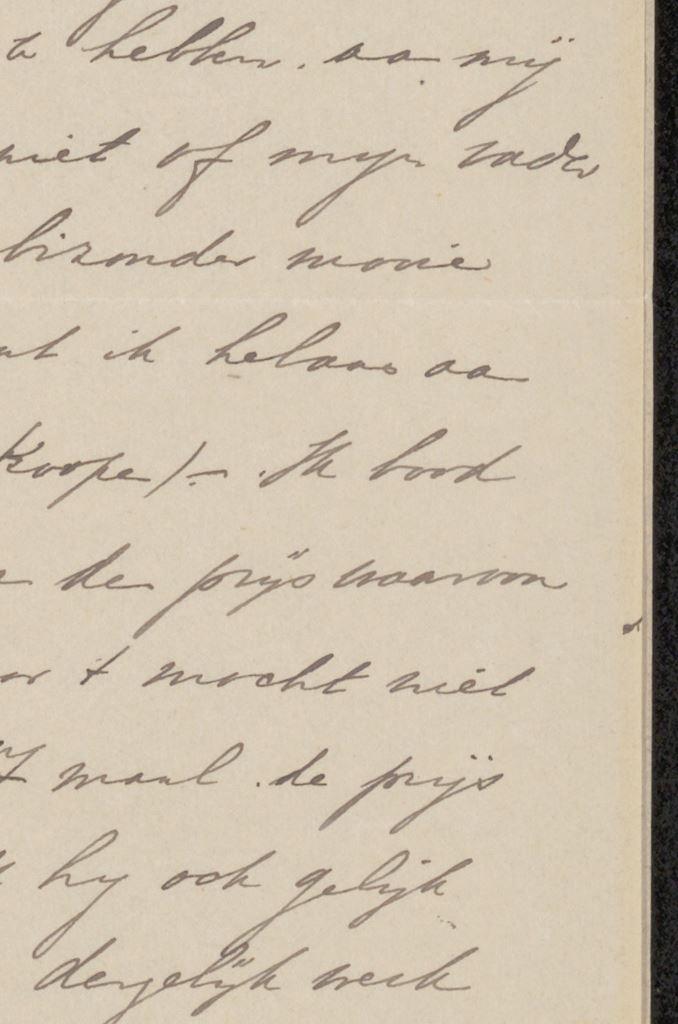 te hebben. aan mij
niet of myn vader
bizonder mooie
ik helaas aan
Koopen)-. Ik bood
den prijs waarvoor
't mocht niet
maal de prijs
hy ook gelijk
dergelijk werk